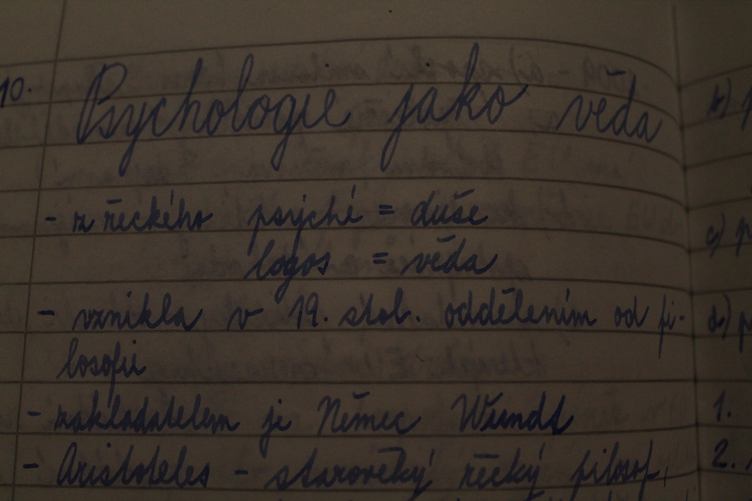 10.
Psychologie jako věda
- z řeckého psýché = duše
logos = věda
- vznikla v 19. stol. oddělením od fi-
losofie
- zakladatelem je Němec Wundt
- Aristoteles - starověký řecký filosof,
b)
c) p
d) p
1.
2.